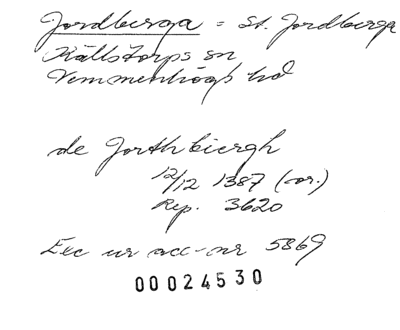 Jordberga = St. Jordberga
Källstorps sn
Vemmenhögs hd
de Jorthbiergh
12/12 1387 (or.)
Rep. 3620
Exc ur acc-nr 5869
00024530